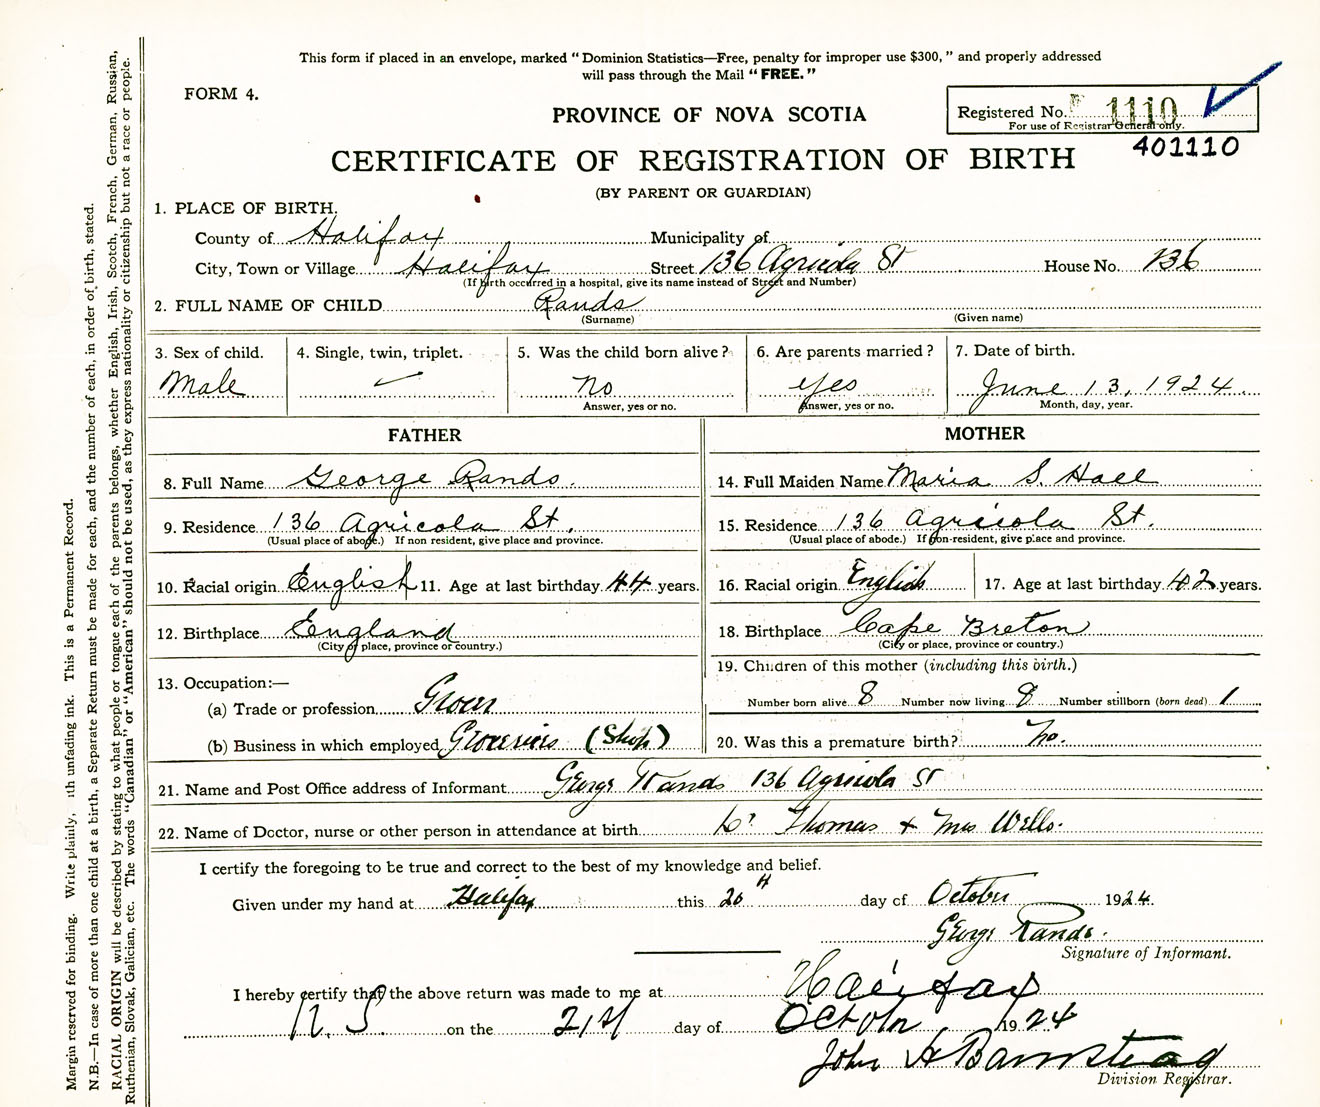 This form if placed in an envelope, marked "Dominion Statistics—Free, penalty for improper use $300," and properly addressed
will pass through the Mail "FREE."
FORM 4.
PROVINCE OF NOVA SCOTIA
Registered No. 1110
For use of Registrar General only.
401110
CERTIFICATE OF REGISTRATION OF BIRTH
(BY PARENT OR GUARDIAN)
1. PLACE OF BIRTH.
County of Halifax Municipality of
City, Town or Village Halifax Street 136 Agricola St House No. 136
(If birth occurred in a hospital, give its name instead of Street and Number)
2. FULL NAME OF CHILD Rands
(Surname) (Given name)
3. Sex of child. 4. Single, twin, triplet. 5. Was the child born alive? 6. Are parents married? 7. Date of birth.
Male no yes June 13, 1924.
Answer, yes or no. Answer, yes or no. Month, day, year.
FATHER MOTHER
8. Full Name George Rands. 14. Full Maiden Name Maria S. Hall
9. Residence 136 Agricola St. 15. Residence 136 Agricola St.
(Usual place of abode.) If non resident, give place and province. (Usual place of abode.) If non-resident, give place and province.
10. Racial origin English 11. Age at last birthday 44 years. 16. Racial origin English 17. Age at last birthday 42 years.
12. Birthplace England 18. Birthplace Cape Breton
(City or place, province or country.) (City or place, province or country.)
19. Children of this mother (including this birth.)
13. Occupation:—
(a) Trade or profession Grocer Number born alive 8 Number now living Number stillborn (born dead) 1
(b) Business in which employed Groceries (Shop) 20. Was this a premature birth? No.
21. Name and Post Office address of Informant George Rands 136 Agricola St
22. Name of Doctor, nurse or other person in attendance at birth Dr Thomas + Mrs Wells.
I certify the foregoing to be true and correct to the best of my knowledge and belief.
Given under my hand at Halifax this 20th day of October 1924.
George Rands.
Signature of Informant.
I hereby certify that the above return was made to me at Halifax
N.S. on the 21st day of October 1924
John H Barnstead
Division Registrar.
Margin reserved for binding. Write plainly, ith unfading ink. This is a Permanent Record.
N.B.—In case of more than one child at a birth, a Separate Return must be made for each, and the number of each, in order of birth, stated.
RACIAL ORIGIN will be described by stating to what people or tongue each of the parents belongs, whether English, Irish, Scotch, French, German, Russian,
Ruthenian, Slovak, Galician, etc. The words "Canadian" or "American" should not be used, as they express nationality or citizenship but not a race or people.